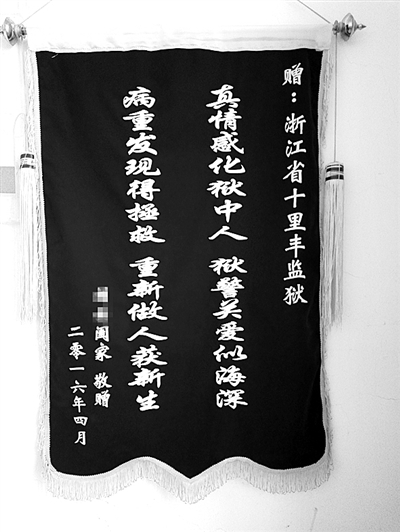 赠：浙江省十里丰监狱
真情感化狱中人 狱警关爱似海深
病重发现得拯救 重新做人获新生
阖家 敬赠
二零一六年四月